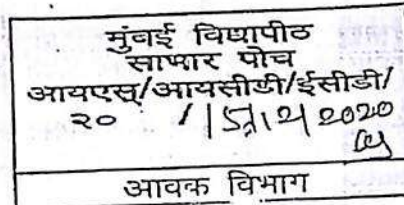 मुंबई विद्यापीठ
साभार पोच
आयएस्/आयसीडी/ईसीडी/
२० / 2020
आवक विभाग